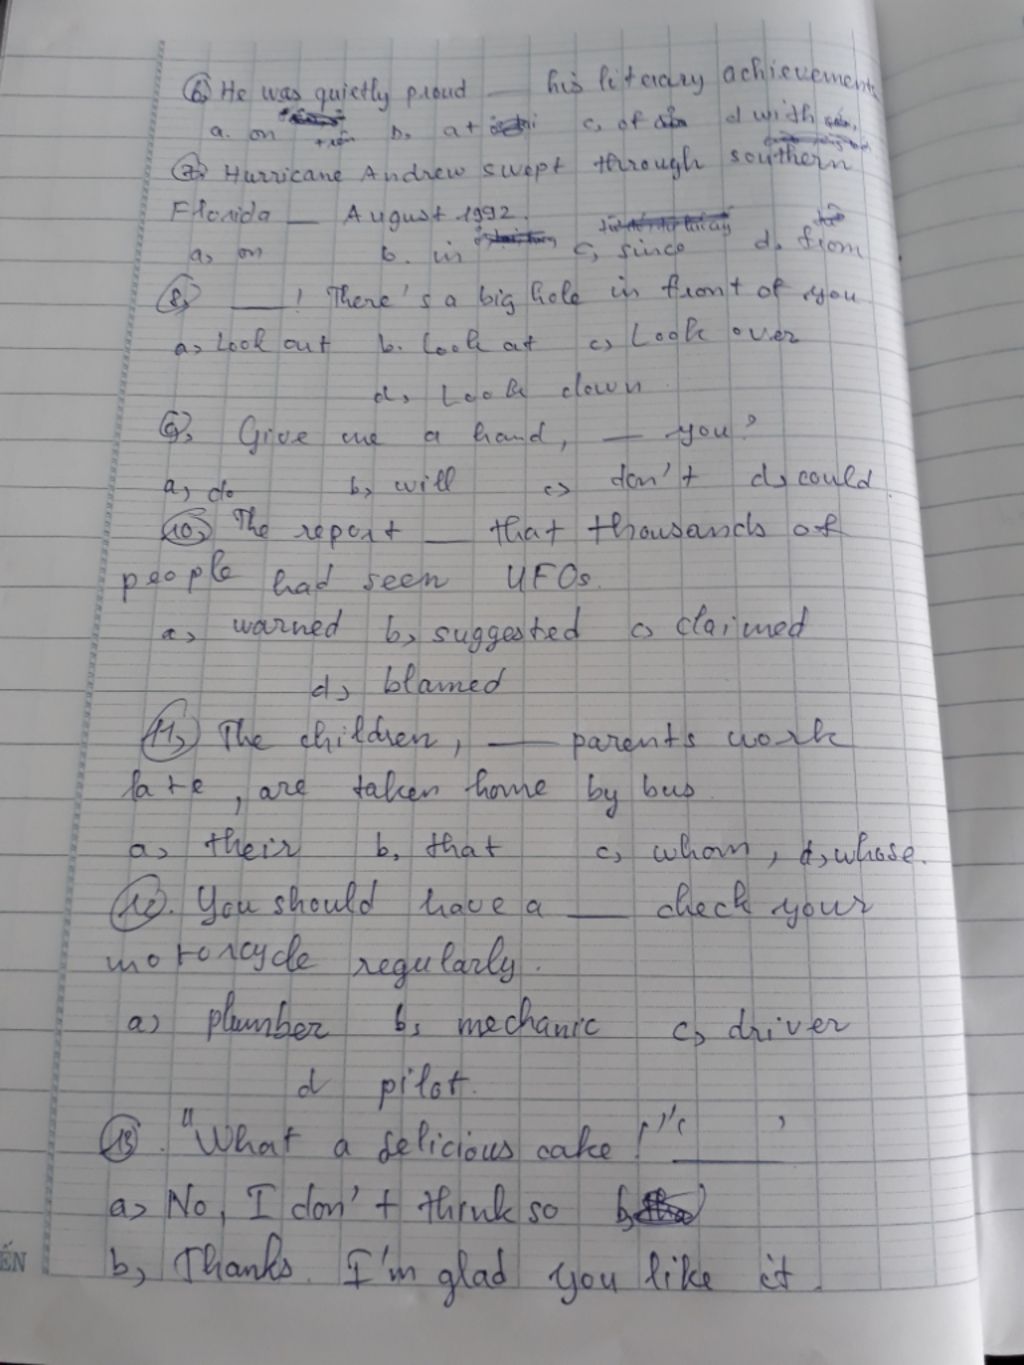 6, He was quietly proud ___ his literary achievements
a. on b, at c, of d with
7, Hurricane Andrew swept through southern
Florida ___ August 1992.
a, on b. in c, since d. from
8, ___! There's a big hole in front of you
a, Look out b. Look at c, Look over
d, Look down
9, Give me a hand, ___ you?
a, do b, will c, don't d, could
10, The report ___ that thousands of
people had seen UFOs.
a, warned b, suggested c, claimed
d, blamed
11, The children, ___ parents work
late, are taken home by bus
a, their b, that c, whom, d, whose.
12. You should have a ___ check your
motorcycle regularly.
a) plumber b, mechanic c, driver
d pilot.
13. "What a delicious cake!" "___"
a, No, I don't think so b,
b, Thanks. I'm glad you like it.
ẾN